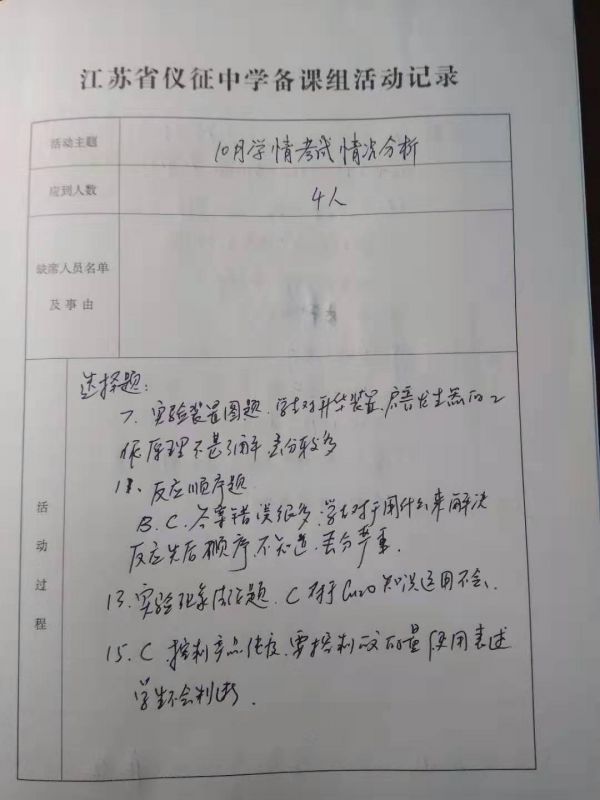 江苏省仪征中学备课组活动记录
活动主题
10月学情考试情况分析
应到人数
4人
缺席人员名单
及事由
活动过程
选择题:
7. 实验装置图题,学生对升华装置、启普发生器的工
作原理不甚了解,丢分较多
11、反应顺序题
B.C.答案错误很多,学生对于用什么来解决
反应先后顺序不知道,丢分严重.
13.实验现象结论题,C对于Cu2O知识运用不会、
15.C.控制产品纯度,要控制的量 使用表述
学生不会判断.